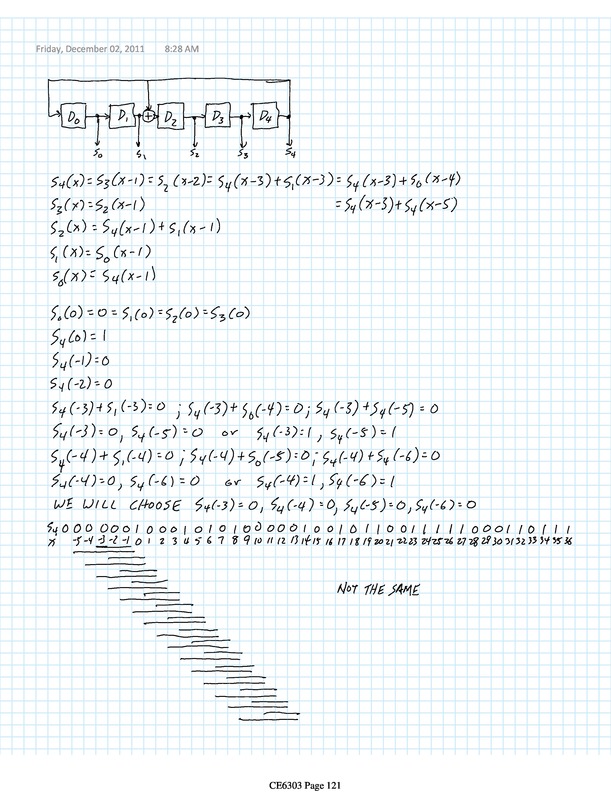 Friday, December 02, 2011 8:28 AM
D₀ D₁ + D₂ D₃ D₄
S₀ S₁ S₂ S₃ S₄
S₄(x)=S₃(x-1)=S₂(x-2)=S₄(x-3)+S₁(x-3)=S₄(x-3)+S₀(x-4)
S₃(x)=S₂(x-1) =S₄(x-3)+S₄(x-5)
S₂(x)=S₄(x-1)+S₁(x-1)
S₁(x)=S₀(x-1)
S₀(x)=S₄(x-1)
S₀(0)=0=S₁(0)=S₂(0)=S₃(0)
S₄(0)=1
S₄(-1)=0
S₄(-2)=0
S₄(-3)+S₁(-3)=0 ; S₄(-3)+S₀(-4)=0; S₄(-3)+S₄(-5)=0
S₄(-3)=0, S₄(-5)=0 or S₄(-3)=1, S₄(-5)=1
S₄(-4)+S₁(-4)=0; S₄(-4)+S₀(-5)=0; S₄(-4)+S₄(-6)=0
S₄(-4)=0, S₄(-6)=0 or S₄(-4)=1, S₄(-6)=1
WE WILL CHOOSE S₄(-3)=0, S₄(-4)=0, S₄(-5)=0, S₄(-6)=0
S₄ 0 0 0 0 0 0 1 0 0 0 1 0 1 0 1 0 0 0 0 0 1 0 0 1 0 1 1 0 0 1 1 1 1 1 0 0 0 1 1 0 1 1 1
x -5 -4 -3 -2 -1 0 1 2 3 4 5 6 7 8 9 10 11 12 13 14 15 16 17 18 19 20 21 22 23 24 25 26 27 28 29 30 31 32 33 34 35 36
NOT THE SAME
CE6303 Page 121